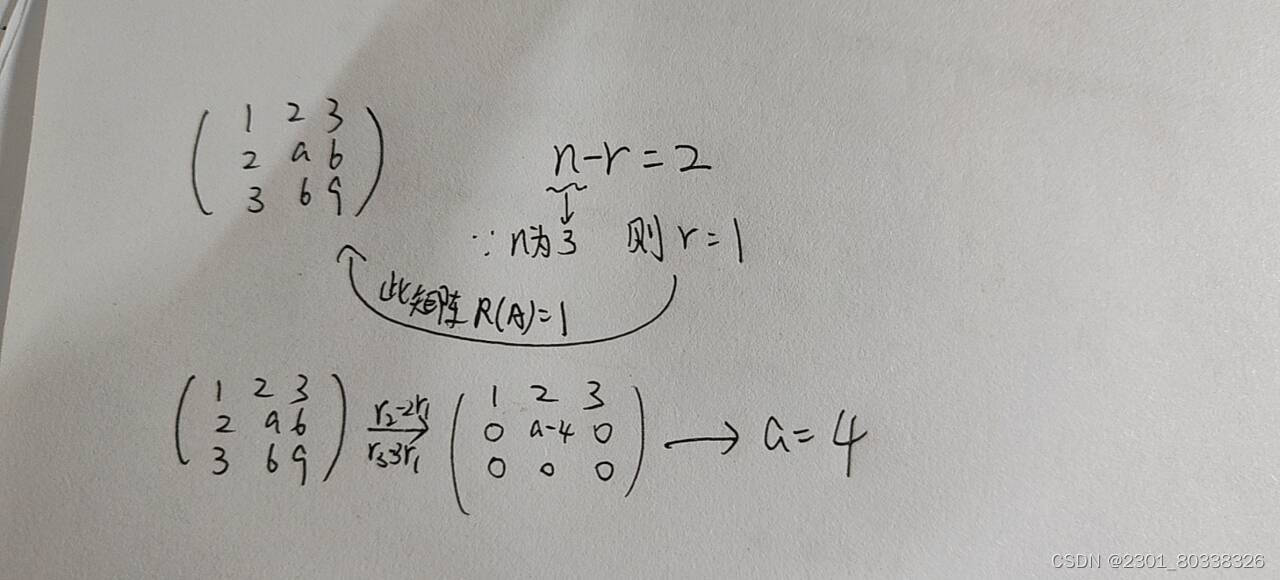 1 2 3
2 a 6
3 6 9
n-r=2
∵n为3 则r=1
此矩阵R(A)=1
1 2 3
2 a 6
3 6 9
r₂-2r₁
r₃-3r₁
1 2 3
0 a-4 0
0 0 0
→ a=4
CSDN @2301_80338326